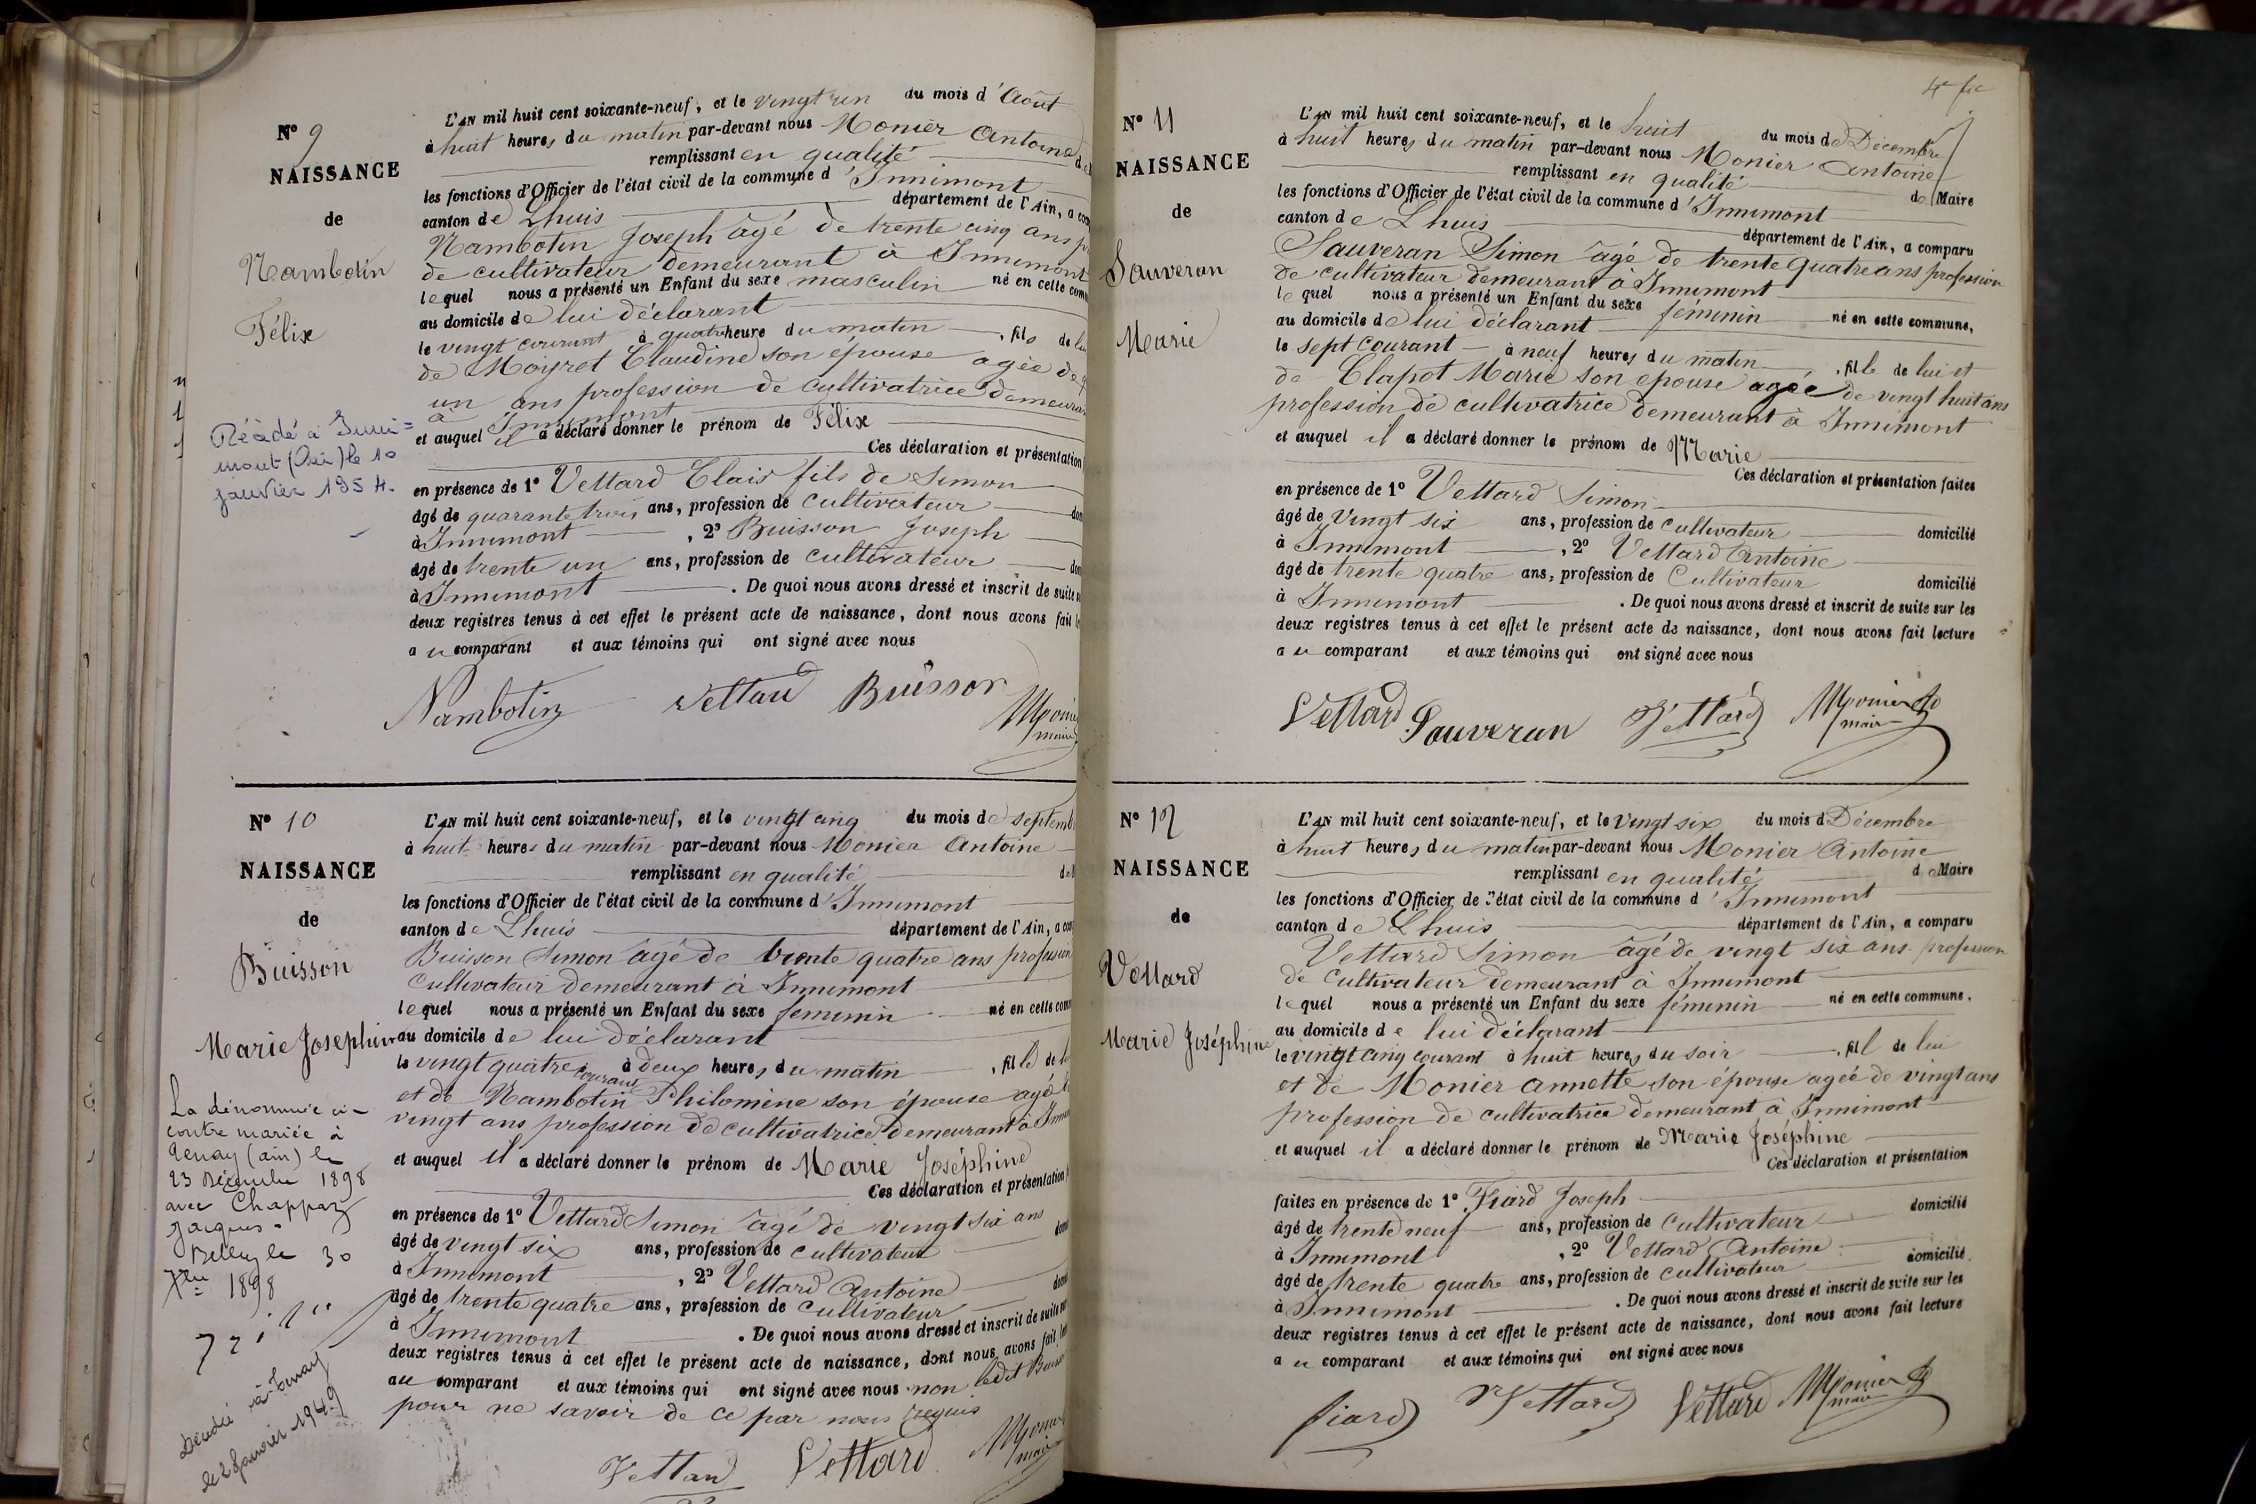 N° 9
NAISSANCE
de
Nambotin
Félix
Décédé à Inni=
mont (Ain) le 10
janvier 1954.
L'AN mil huit cent soixante-neuf, et le vingt un du mois d'Août
à huit heures du matin par-devant nous Monier Antoine
remplissant en qualité
les fonctions d'Officier de l'état civil de la commune d'Innimont
canton de Lhuis département de l'Ain, a
Nambotin Joseph âgé de trente cinq ans
de cultivateur demeurant à Innimont
lequel nous a présenté un Enfant du sexe masculin né en cette
au domicile de lui déclarant
le vingt courant à quatre heure du matin, fils de
de Moyret Claudine son épouse agée de
un ans profession de cultivatrice
à Innimont
et auquel il a déclaré donner le prénom de Félix
Ces déclaration et présentation
en présence de 1° Vettard Clais fils de Simon
âgé de quarante trois ans, profession de cultivateur
à Innimont, 2° Buisson Joseph
âgé de trente un ans, profession de cultivateur
à Innimont. De quoi nous avons dressé et inscrit de suite
deux registres tenus à cet effet le présent acte de naissance, dont nous avons fait
au comparant et aux témoins qui ont signé avec nous
Nambotin Vettard Buisson Monier
maire
N° 10
NAISSANCE
de
Buisson
Marie Joséphine
La dénommée ci-
contre mariée à
Tenay (ain) le
23 Décembre 1898
avec Chappaz
Jacques.
Belley le 30
Xbre 1898
Décédée à Tenay
le 28 janvier 1949
L'AN mil huit cent soixante-neuf, et le vingt cinq du mois de
à huit heures du matin par-devant nous Monier Antoine
remplissant en qualité
les fonctions d'Officier de l'état civil de la commune d'Innimont
canton de Lhuis département de l'Ain, a
Buisson Simon âgé de trente quatre ans profession
cultivateur demeurant à Innimont
lequel nous a présenté un Enfant du sexe féminin né en cette
au domicile de lui déclarant
le vingt quatre courant à deux heures du matin, fille de
et de Nambotin Philomène son épouse agé
vingt ans profession de cultivatrice demeurant à
et auquel il a déclaré donner le prénom de Marie Joséphine
Ces déclaration et présentation
en présence de 1° Vettard Simon âgé de vingt six ans
âgé de vingt six ans, profession de cultivateur
à Innimont, 2° Vettard Antoine
âgé de trente quatre ans, profession de cultivateur
à Innimont. De quoi nous avons dressé et inscrit de suite
deux registres tenus à cet effet le présent acte de naissance, dont nous avons fait
au comparant et aux témoins qui ont signé avec nous non ledit
pour ne savoir de ce par nous requis
Vettard Vettard Monier
maire
N° 11
NAISSANCE
de
Sauveran
Marie
L'AN mil huit cent soixante-neuf, et le huit du mois de Décembre
à huit heures du matin par-devant nous Monier Antoine
remplissant en qualité de Maire
les fonctions d'Officier de l'état civil de la commune d'Innimont
canton de Lhuis département de l'Ain, a comparu
Sauveran Simon âgé de trente quatre ans profession
de cultivateur demeurant à Innimont
lequel nous a présenté un Enfant du sexe féminin né en cette commune,
au domicile de lui déclarant
le sept courant à neuf heures du matin, fille de lui et
de Clapot Marie son épouse agée de vingt huit ans
profession de cultivatrice demeurant à Innimont
et auquel il a déclaré donner le prénom de Marie
Ces déclaration et présentation faites
en présence de 1° Vettard Simon
âgé de vingt six ans, profession de cultivateur domicilié
à Innimont, 2° Vettard Antoine
âgé de trente quatre ans, profession de Cultivateur domicilié
à Innimont. De quoi nous avons dressé et inscrit de suite sur les
deux registres tenus à cet effet le présent acte de naissance, dont nous avons fait lecture
au comparant et aux témoins qui ont signé avec nous
Vettard Sauveran Vettard Monier
maire
N° 12
NAISSANCE
de
Vettard
Marie Joséphine
L'AN mil huit cent soixante-neuf, et le vingt six du mois de Décembre
à huit heures du matin par-devant nous Monier Antoine
remplissant en qualité de Maire
les fonctions d'Officier de l'état civil de la commune d'Innimont
canton de Lhuis département de l'Ain, a comparu
Vettard Simon âgé de vingt six ans profession
de cultivateur demeurant à Innimont
lequel nous a présenté un Enfant du sexe féminin né en cette commune,
au domicile de lui déclarant
le vingt cinq courant à huit heures du soir, fill de lui
et de Monier Annette son épouse agée de vingt ans
profession de cultivatrice demeurant à Innimont
et auquel il a déclaré donner le prénom de Marie Joséphine
Ces déclaration et présentation
faites en présence de 1° Fiard Joseph
âgé de trente neuf ans, profession de cultivateur domicilié
à Innimont, 2° Vettard Antoine
âgé de trente quatre ans, profession de cultivateur domicilié
à Innimont. De quoi nous avons dressé et inscrit de suite sur les
deux registres tenus à cet effet le présent acte de naissance, dont nous avons fait lecture
au comparant et aux témoins qui ont signé avec nous
fiard Vettard Vettard Monier
maire